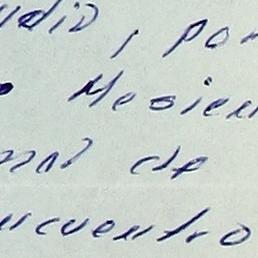 udio, por
Mesieu
nal de
ncuentro